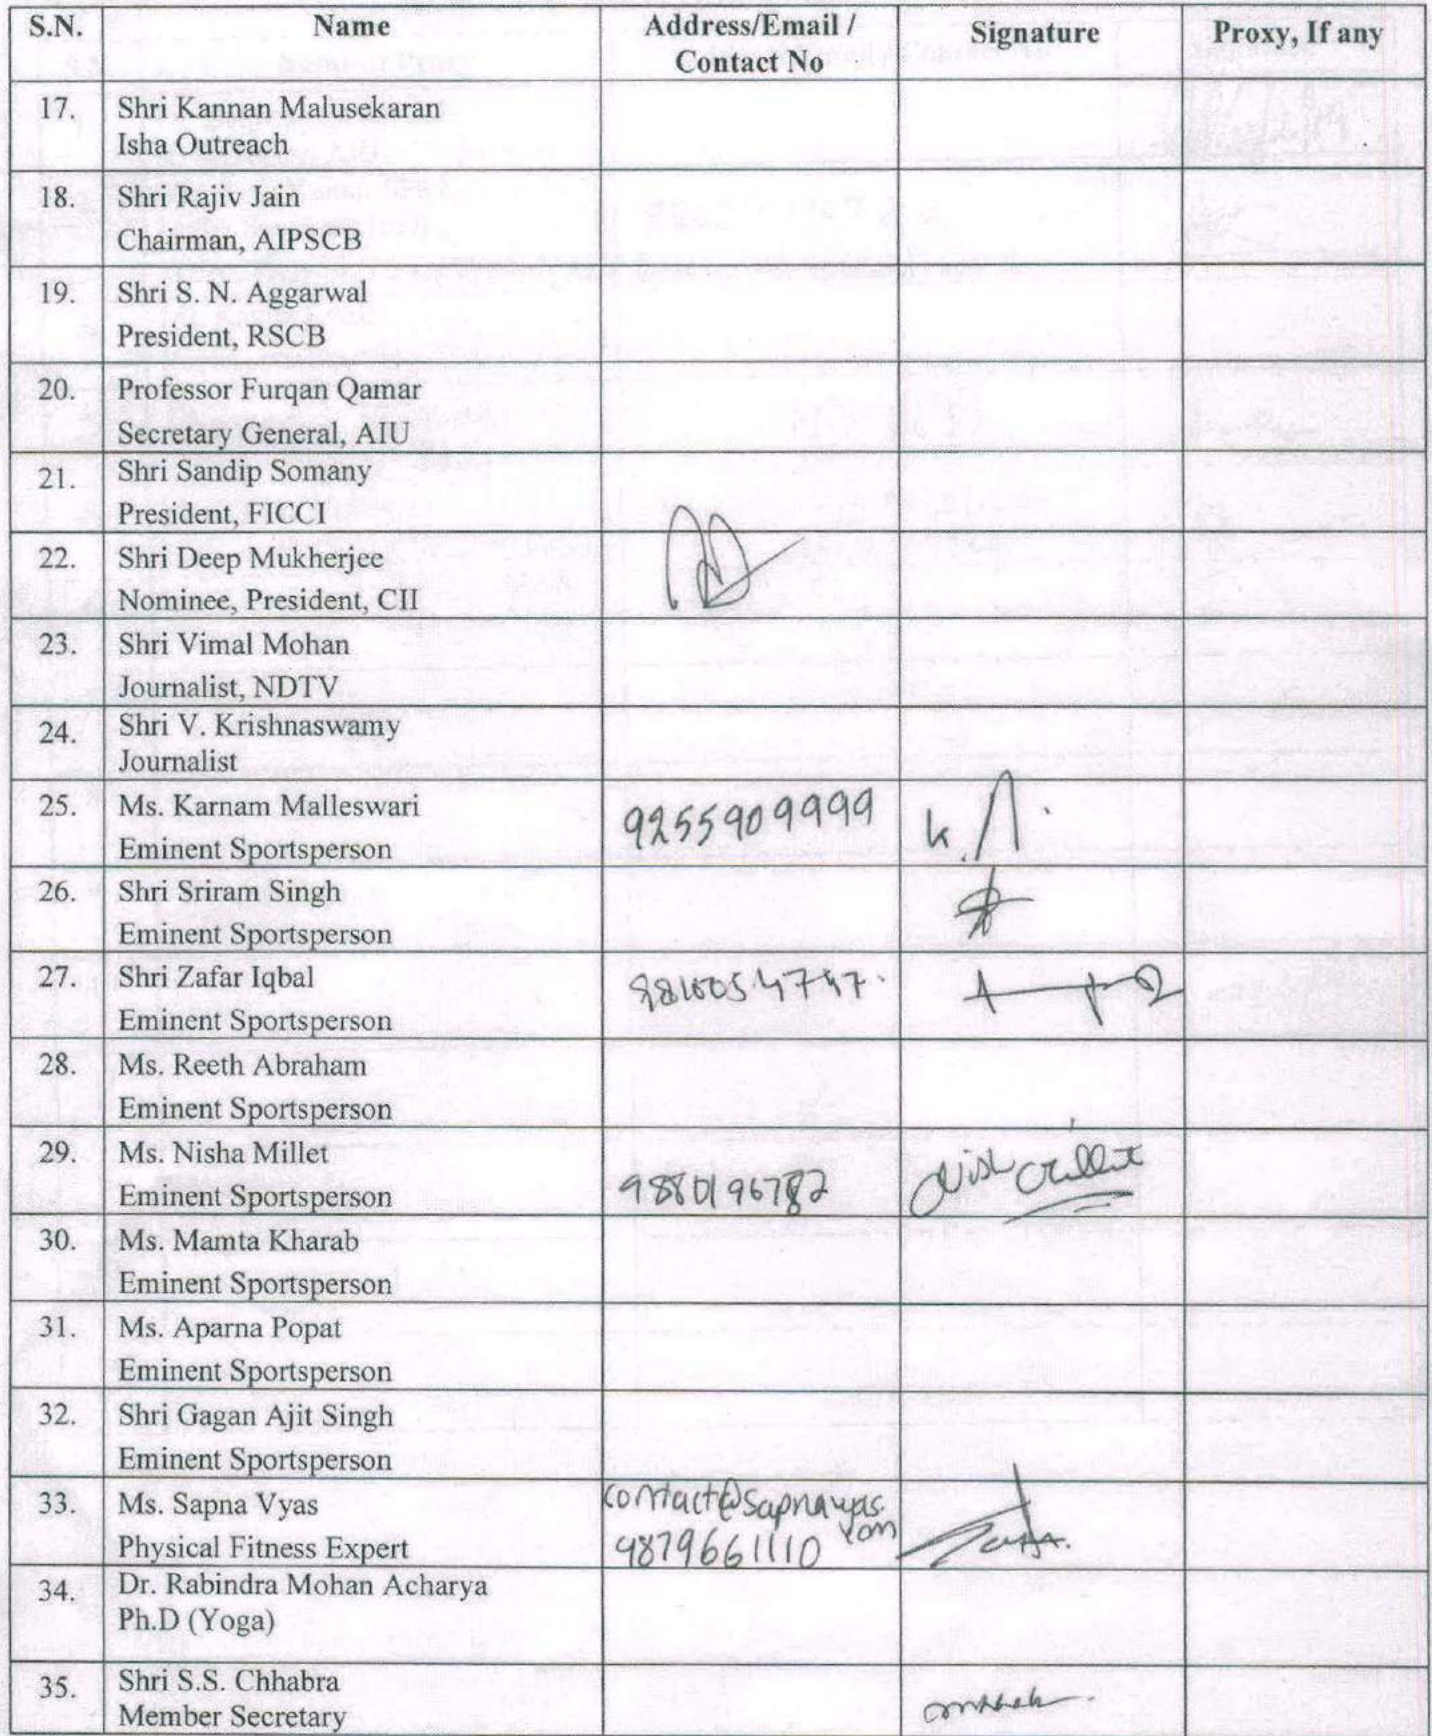 S.N. Name Address/Email / Signature Proxy, If any
Contact No
17. Shri Kannan Malusekaran
Isha Outreach
18. Shri Rajiv Jain
Chairman, AIPSCB
19. Shri S. N. Aggarwal
President, RSCB
20. Professor Furqan Qamar
Secretary General, AIU
21. Shri Sandip Somany
President, FICCI
22. Shri Deep Mukherjee
Nominee, President, CII
23. Shri Vimal Mohan
Journalist, NDTV
24. Shri V. Krishnaswamy
Journalist
25. Ms. Karnam Malleswari 9255909999
Eminent Sportsperson
26. Shri Sriram Singh
Eminent Sportsperson
27. Shri Zafar Iqbal
Eminent Sportsperson
28. Ms. Reeth Abraham
Eminent Sportsperson
29. Ms. Nisha Millet
Eminent Sportsperson 9880196782
30. Ms. Mamta Kharab
Eminent Sportsperson
31. Ms. Aparna Popat
Eminent Sportsperson
32. Shri Gagan Ajit Singh
Eminent Sportsperson
33. Ms. Sapna Vyas contact@sapnavyas
.com
Physical Fitness Expert 9879661110
34. Dr. Rabindra Mohan Acharya
Ph.D (Yoga)
35. Shri S.S. Chhabra
Member Secretary